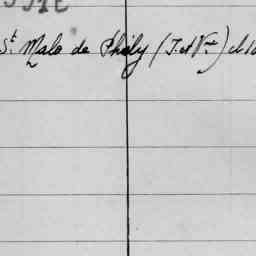 St Malo de Phily (I. et V.)